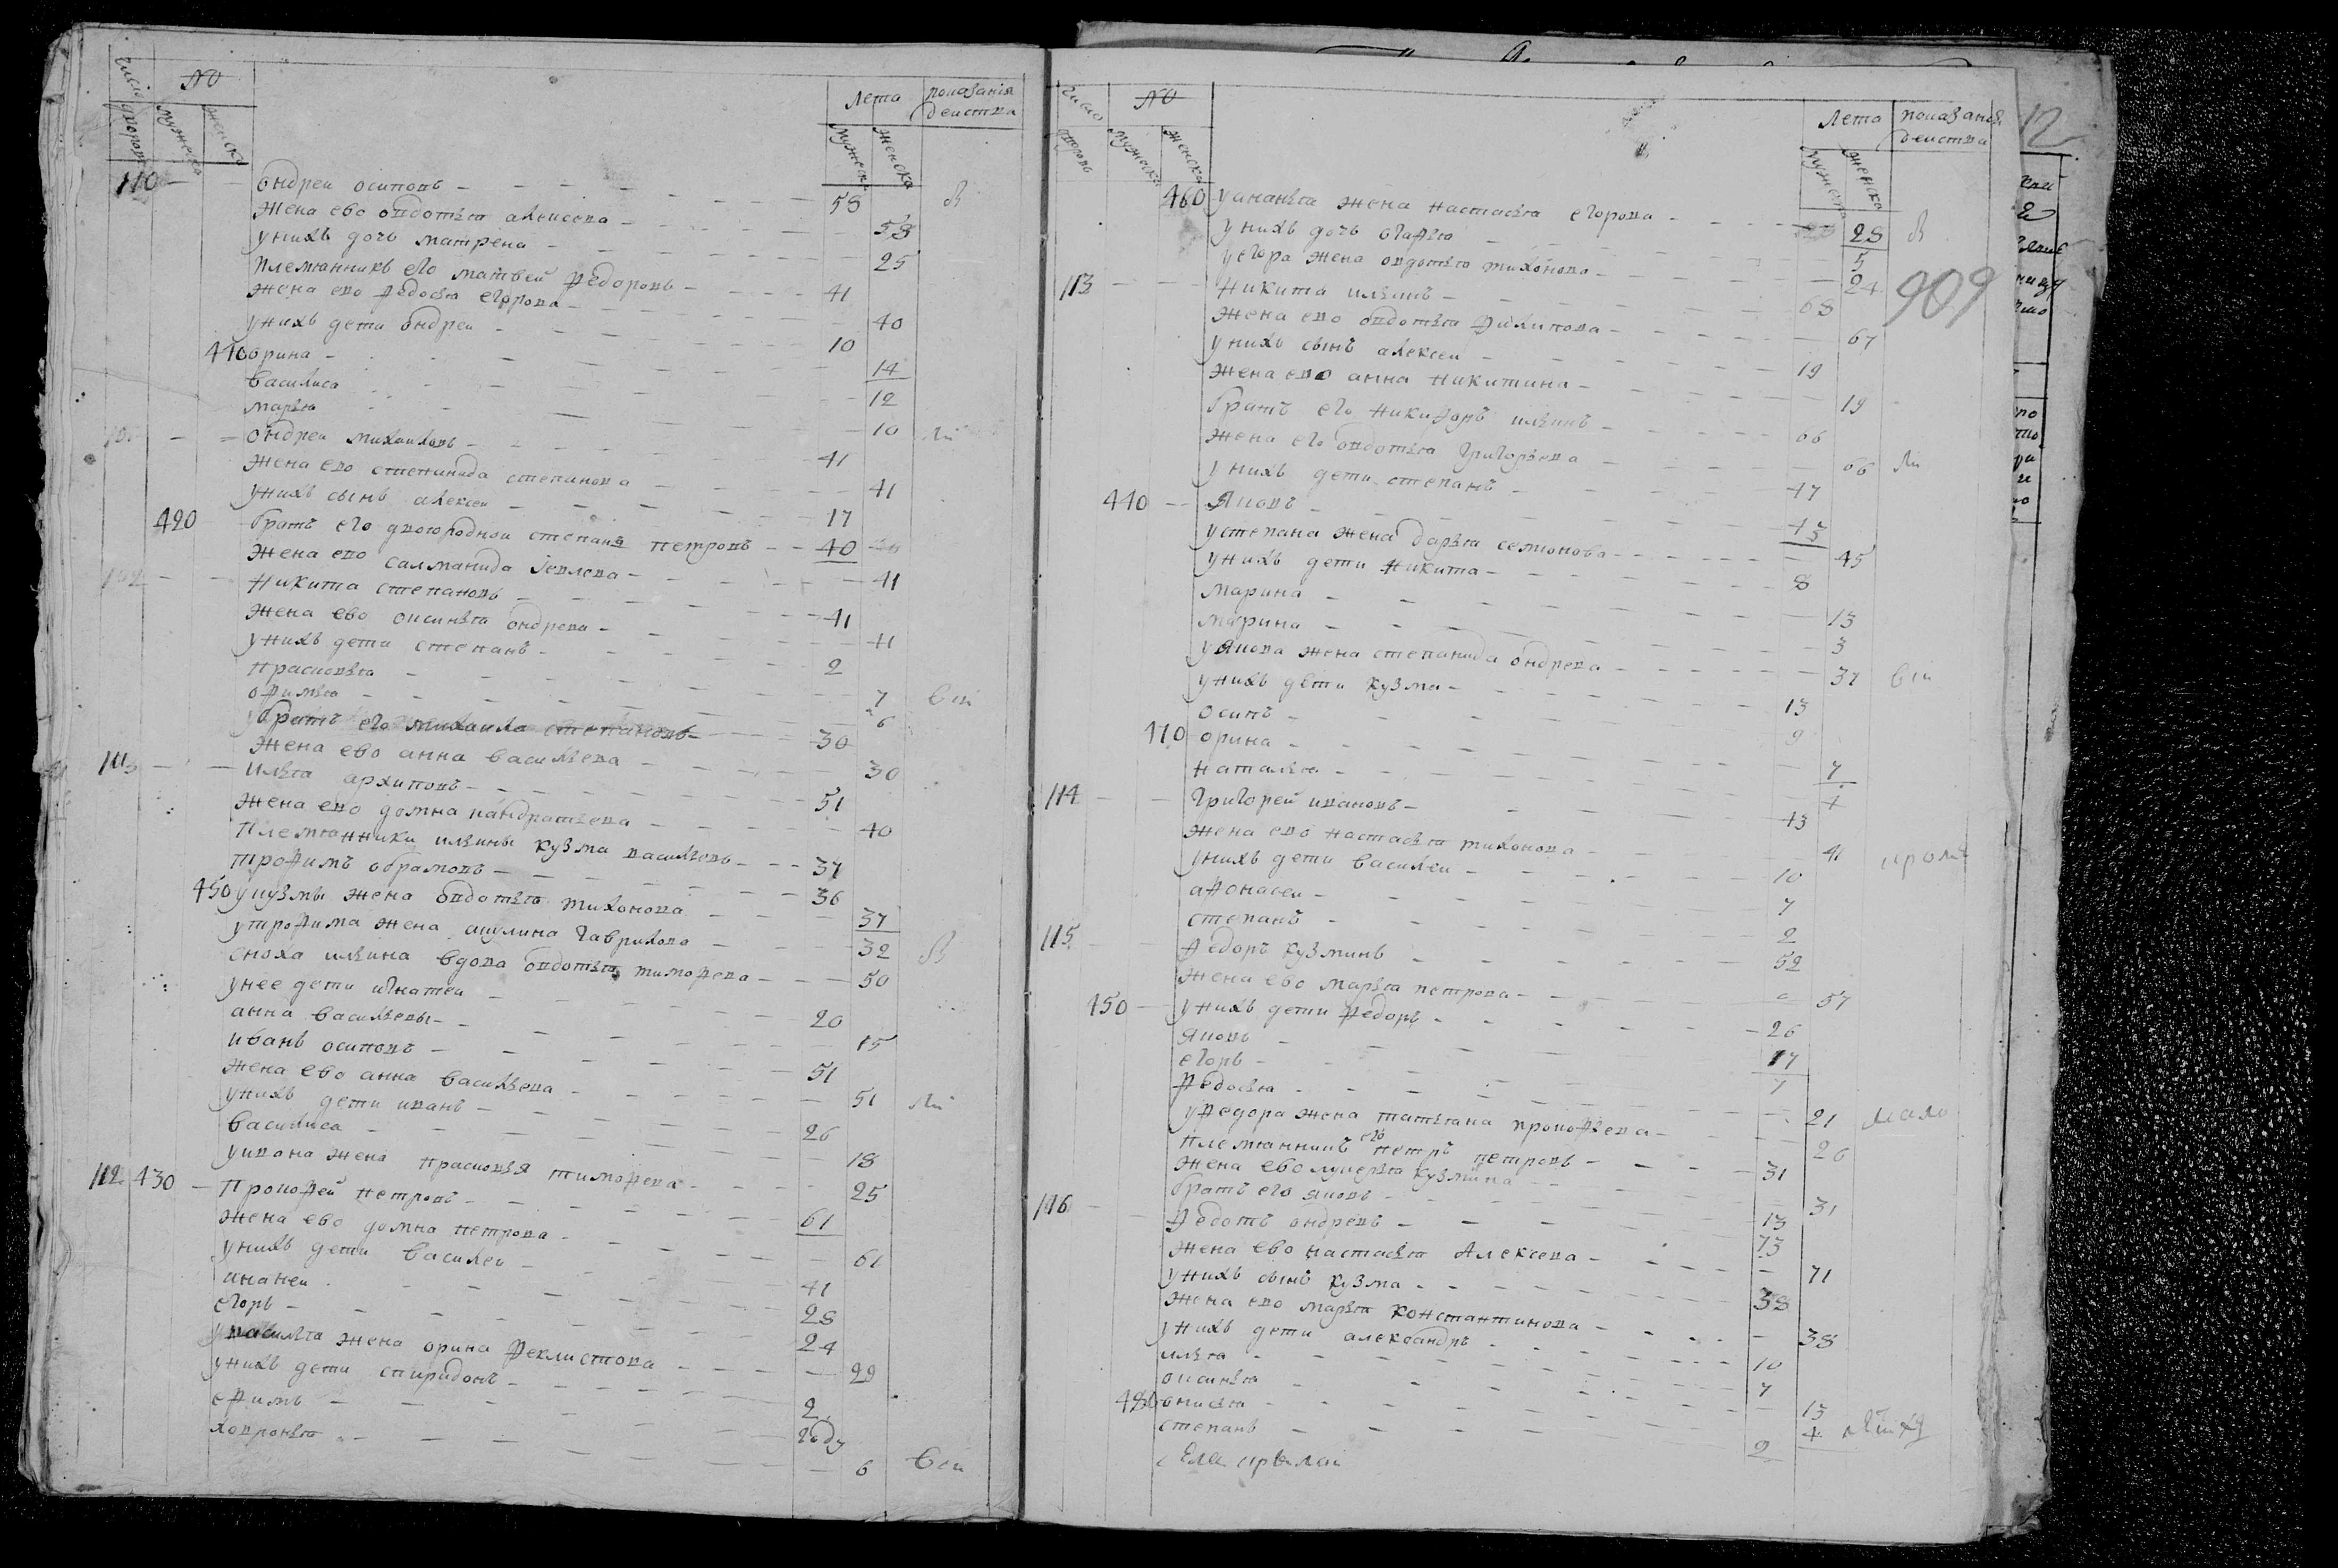 число дворовъ № мужеска женска Лета мужеска женска показанiя деиства
110 Ондреи осиповъ 58
Жена ево овдотья алексеева 58
унихъ дочь матрена 25
племянникъ его матвей федоровъ 41
жена ево федосья егорова 40
унихъ дети ондреи 10
410 орина 14
василиса 12
марья 10
ондреи михаиловъ 41
жена ево степанида степанова 41
унихъ сынъ алексеи 17
420 братъ его двоюродной степанъ петровъ 40
жена ево саламанида Iевлева 41
никита степановъ 41
жена ево оксинья ондрева 41
унихъ дети степанъ 2
прасковья 7
офимья 6
братъ его михаила степановъ 30
Жена ево анна васильева 30
111 илья архиповъ 51
жена ево домна кандратьева 40
племянники ильины кузма васильевъ 37
трофимъ обрамовъ 36
450 укузмы жена овдотья тихонова 37
утрофима жена акулина гаврилова 32
сноха ильина вдова овдотья тимофева 50
унее дети игнатеи 20
анна васильевы 15
иванъ осиповъ 51
жена ево анна васильева 51
унихъ дети иванъ 26
василиса 18
уивана жена прасковья тимофева 25
112 430 Прокофей петровъ 61
жена ево домна петрова 61
унихъ дети василеи 41
ананеи 28
егоръ 24
увасилья жена орина феклистова 29
унихъ дети спиридонъ 2
ефимъ году
ховронья 6
число дворовъ № мужеска женска Лета мужеска женска показанiя деиства
12
460 уананья жена настасья егорова 28
унихъ дочь огафья 5
уегора жена овдотья тихонова 24
909
113 Никита ильинъ 68
жена ево овдотья филипова 67
унихъ сынъ алексеи 19
жена ево анна никитина 19
братъ его никифоръ ильинъ 66
жена его овдотья григорьева 66
унихъ дети степанъ 47
440 Яковъ 43
устепана жена дарья семионова 45
унихъ дети Никита 8
марина 13
марина 3
уякова жена степанида ондрева 37
унихъ дети кузма 13
осипъ 9
470 орина 7
наталья 4
114 григорей ивановъ 43
жена ево настасья тихонова 41
унихъ дети василеи 10
афонасеи 7
степанъ 2
115 федоръ кузминъ 52
жена ево марья петрова 57
450 унихъ дети федоръ 26
яковъ 17
егоръ 7
федосья 21
уфедора жена татьяна прокофьева 26
племянникъ его петръ петровъ 31
жена ево лукерья кузмина 31
братъ его яковъ 13
116 федотъ ондревъ 73
жена ево настасья Алексева 71
унихъ сынъ кузма 38
жена ево марья константинова 38
унихъ дети александръ 10
илья 7
оксинья 13
480 онисья 4
степанъ 2